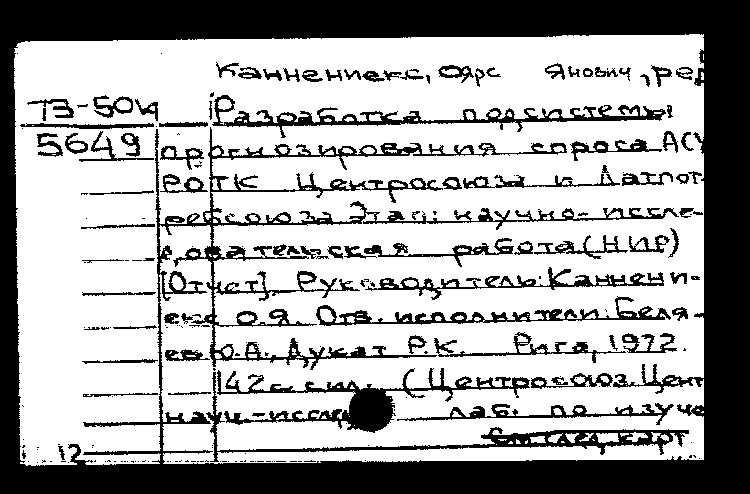 Каннениекс, Оярс Янович, ред
ТЗ-50и Разработка подсистемы
5649 прогнозирования спроса АСУ
РОТК Центросоюза и Латпот-
ребсоюза Этап: научно-иссле-
довательская работа (НИР)
[Отчет]. Руководитель: Каннени-
екс О.Я. Отв. исполнители: Беля-
ев Ю.А., Дукат Р.К. Рига, 1972.
142 с. с ил. (Центросоюз. Цент
науч.-исслед. лаб. по изуче
См след. карт
12